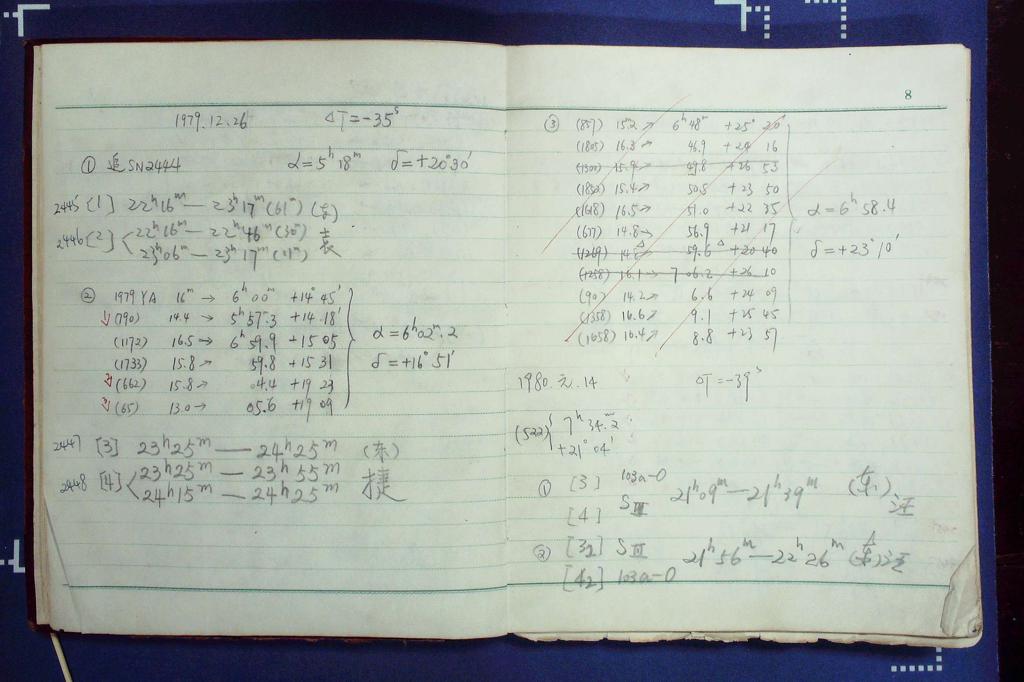 1979.12.26 ΔT=-35ˢ
① 追 SN2444 α=5ʰ18ᵐ δ=+20°30′
2445 [1] 22ʰ16ᵐ — 23ʰ17ᵐ (61ᵐ)
2446 [2] 22ʰ16ᵐ — 22ʰ46ᵐ (30ᵐ)
23ʰ06ᵐ — 23ʰ17ᵐ (11ᵐ)
② 1979 YA 16ᵐ → 6ʰ00ᵐ +14°45′
(790) 14.4 → 5ʰ57.3 +14.18′
(1172) 16.5 → 6ʰ59.9 +15 05
(1733) 15.8 → 59.8 +15 31
(662) 15.8 → 04.4 +19 23
(65) 13.0 → 05.6 +19 09
α=6ʰ02ᵐ.2
δ=+16°51′
2447 [3] 23ʰ25ᵐ — 24ʰ25ᵐ (东)
2448 [4] 23ʰ25ᵐ — 23ʰ55ᵐ 捷
24ʰ15ᵐ — 24ʰ25ᵐ
8
③ (857) 15.2 → 6ʰ48ᵐ +25° 20′
(1805) 16.3 → 46.9 +24 16
(1300) 15.9 → 49.8 +26 53
15.4 → 50.5 +23 50
16.5 → 51.0 +22 35
(677) 14.8 → 56.9 +21 17
(1269) 59.6 +20 40
(1258) 16.1 → 7 06.2 +26 10
(90) 14.2 → 6.6 +24 09
(1358) 16.6 → 9.1 +25 45
(1658) 16.4 → 8.8 +23 57
α=6ʰ58.4
δ=+23°10′
1980.元.14 ΔT=-39ˢ
(522) 7ʰ34ᵐ.2
+21°04′
① [3] 103a-O 21ʰ09ᵐ — 21ʰ39ᵐ (东)
[4] SⅢ
② [3₂] SⅢ 21ʰ56ᵐ — 22ʰ26ᵐ
[4₂] 103a-O